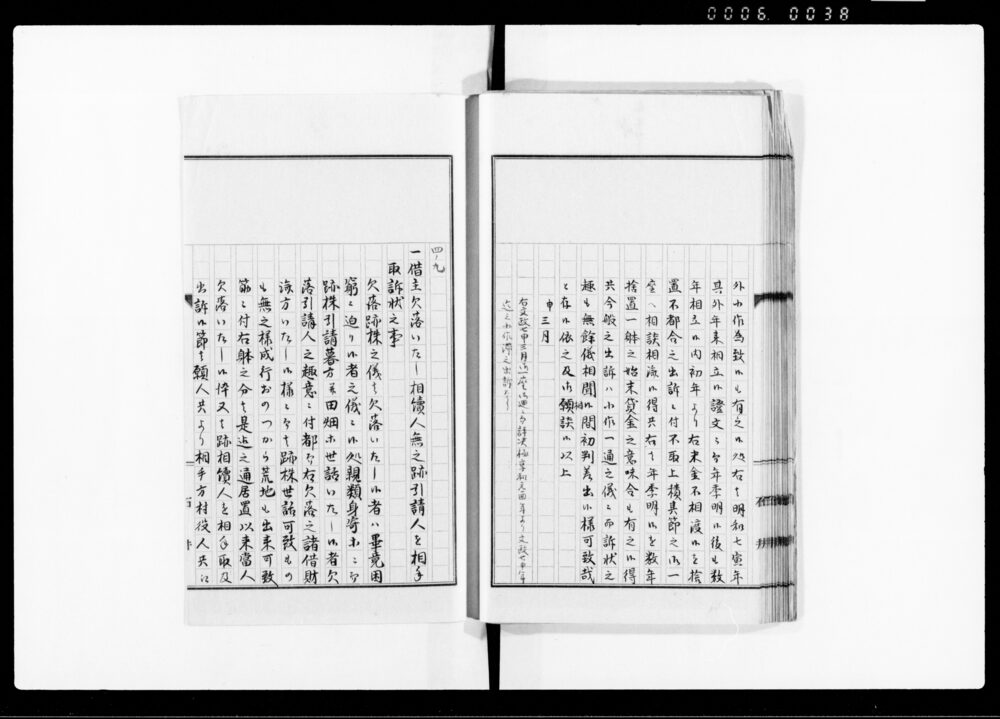 0006. 0038
外小作為致候も有之候処右者明和七寅年
其外年来相立候證文ニ而年季明候後も数
年相立候内初年より右米金不相渡候を捨
置不都合之出訴ニ付不取上積其節之御一
座へ相談相済候得共右者年季明候を数年
捨置一躰之始末貸金之意味合も有之候得
共今般之出訴ハ小作一通之儀ニ而訴状之
趣も無餘儀相聞候間初判差出候様可致哉
と存候依之及御相願談候以上
申三月
右文政七申三月御一座
四ノ九
一借主欠落いたし相續人無之跡引請人を相手
取訴状之事
欠落跡株之儀者欠落いたし候者ハ畢竟困
窮ニ迫り候者之儀ニ候処親類身寄等ニ而
跡株引請暮方并田畑等世話いたし候者欠
落引請人之趣意ニ付都而右欠落之諸借財
済方いたし候様ニ而者跡株世話可致もの
も無之様成行おのつから荒地も出来可致
筋ニ付右躰之分者是迄之通居置以来當人
欠落いたし候悴又者跡相續人を相手取及
出訴候節者願人共より相手方村役人共江